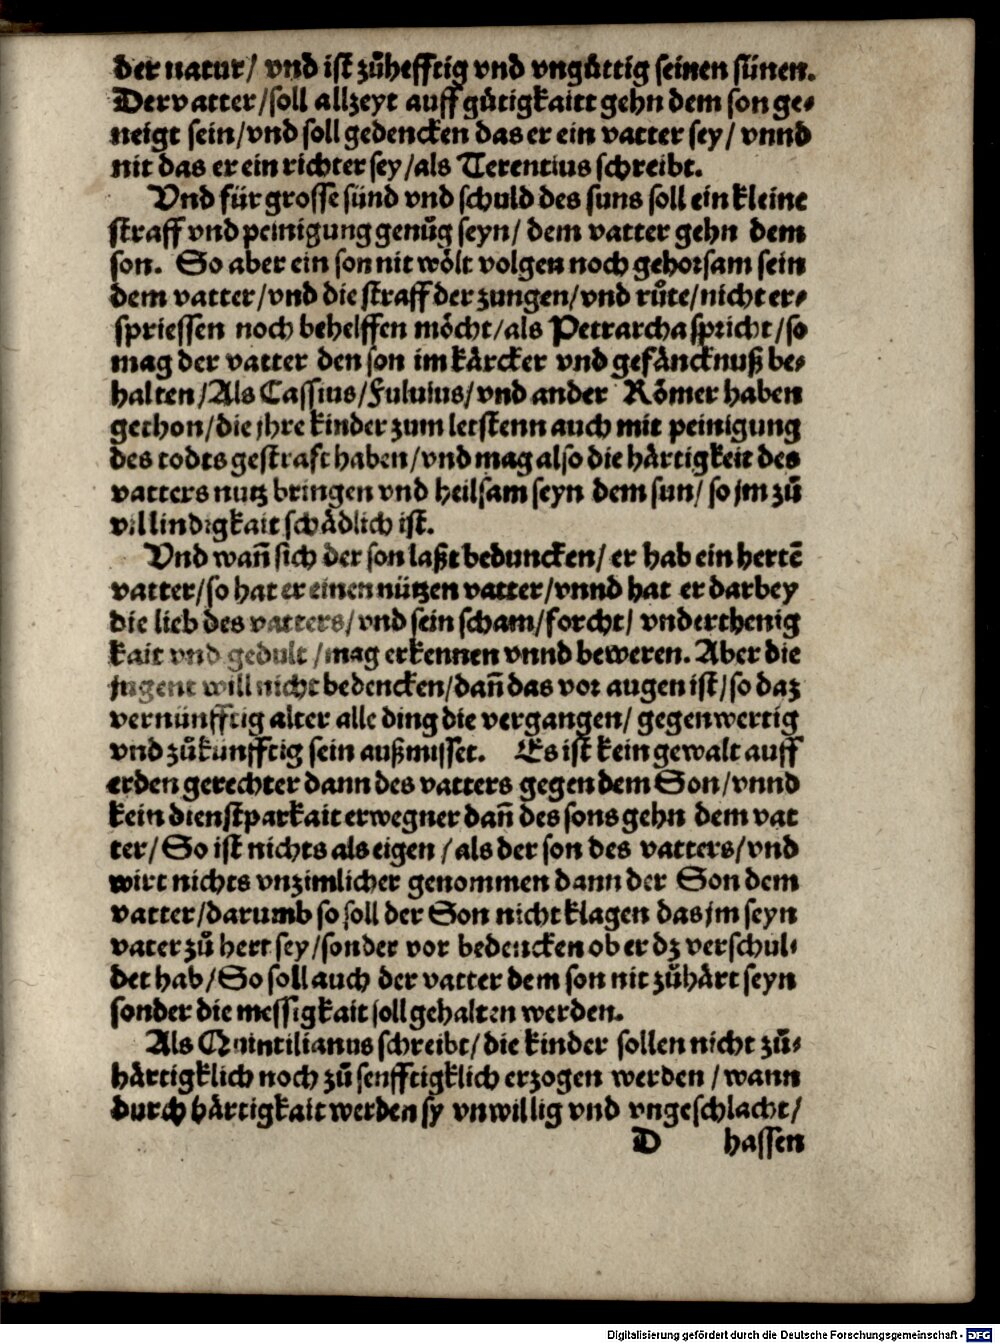 der natur/ vnd ist zůhefftig vnd vngůttig seinen sünen.
Der vatter/soll allzeyt auff gütigkaitt gehn dem son ge⸗
neigt sein/vnd soll gedencken das er ein vatter sey/ vnnd
nit das er ein richter sey/als Terentius schreibt.
Vnd für grosse sünd vnd schuld des suns soll ein kleine
straff vnd peinigung genůg seyn/ dem vatter gehn dem
son. So aber ein son nit wölt volgen noch gehorsam sein
dem vatter/vnd die straff der zungen/vnd růte/nicht er⸗
spriessen noch behelffen möcht/als Petrarcha spricht/so
mag der vatter den son im kärcker vnd gefäncknuß be⸗
halten/Als Cassius/Fuluius/vnd ander Römer haben
gethon/die jhre kinder zum letstenn auch mit peinigung
des todts gestraft haben/vnd mag also die härtigkeit des
vatters nutz bringen vnd heilsam seyn dem sun/ so jm zů
vil lindigkait schädlich ist.
Vnd wañ sich der son laßt beduncken/ er hab ein hertē
vatter/so hat er einen nützen vatter/vnnd hat er darbey
die lieb des vatters/vnd sein scham/forcht/ vnderthenig
kait vnd gedult /mag erkennen vnnd beweren. Aber die
jugent will nicht bedencken/dañ das vor augen ist/so daz
vernünfftig alter alle ding die vergangen/ gegenwertig
vnd zůkünfftig sein außmisset. Es ist kein gewalt auff
erden gerechter dann des vatters gegen dem Son/vnnd
kein dienstparkait erwegner dañ des sons gehn dem vat
ter/ So ist nichts als eigen /als der son des vatters/vnd
wirt nichts vnzimlicher genommen dann der Son dem
vatter/darumb so soll der Son nicht klagen das jm seyn
vater zů hert sey/sonder vor bedencken ob er dz verschul⸗
det hab/So soll auch der vatter dem son nit zůhärt seyn
sonder die messigkait soll gehalten werden.
Als Quintilianus schreibt/die kinder sollen nicht zů⸗
härtigklich noch zů senfftigklich erzogen werden /wann
durch härtigkait werden sy vnwillig vnd vngeschlacht/
D hassen
Digitalisierung gefördert durch die Deutsche Forschungsgemeinschaft - DFG